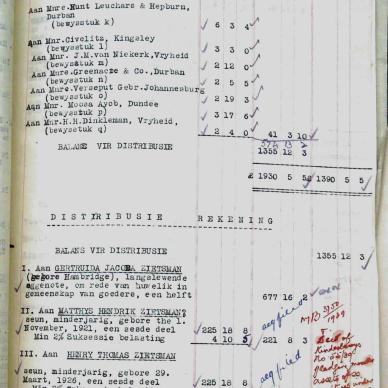 Aan Mnre.Hunt Leuchars & Hepburn,
Durban
(bewysstuk k) 6 3 4
Aan Mnr.Civelitz, Kingsley
(bewysstuk l) 3 3 0
Aan Mnr. J.M.van Niekerk,Vryheid
(bewysstuk m) 2 12 0
Aan Mnre.Greenacre & Co.,Durban
(bewysstuk n) 2 5 5
Aan Mnre.Verseput Gebr.Johannesburg
(bewysstuk o) 2 19 3
Aan Mnr. Moosa Ayob, Dundee
(bewysstuk p) 3 17 6
Aan Mnr.H.H.Dinkleman, Vryheid,
(bewysstuk q) 2 4 0 41 3 10
574 13 2
BALANS VIR DISTRIBUSIE 1355 12 3
£ 1930 5 5 £ 1390 5 5
DISTRIBUSIE REKENING
BALANS VIR DISTRIBUSIE 1355 12 3
I. Aan GERTRUIDA JACOBA ZIETSMAN
(gebore Hambridge), langslewende
eggenote, om rede van huwelik in
gemeenskap van goedere, een helft 677 16 2
II. Aan MATTHYS HENDRIK ZIETSMAN
seun, minderjarig, gebore the 1.
November, 1921, een sesde deel 225 18 8
Min 2% Suksessie belasting 4 10 3 221 8 5
III. Aan HENRY THOMAS ZIETSMAN
seun, minderjarig, gebore 29.
Maart, 1926, een sesde deel 225 18 8